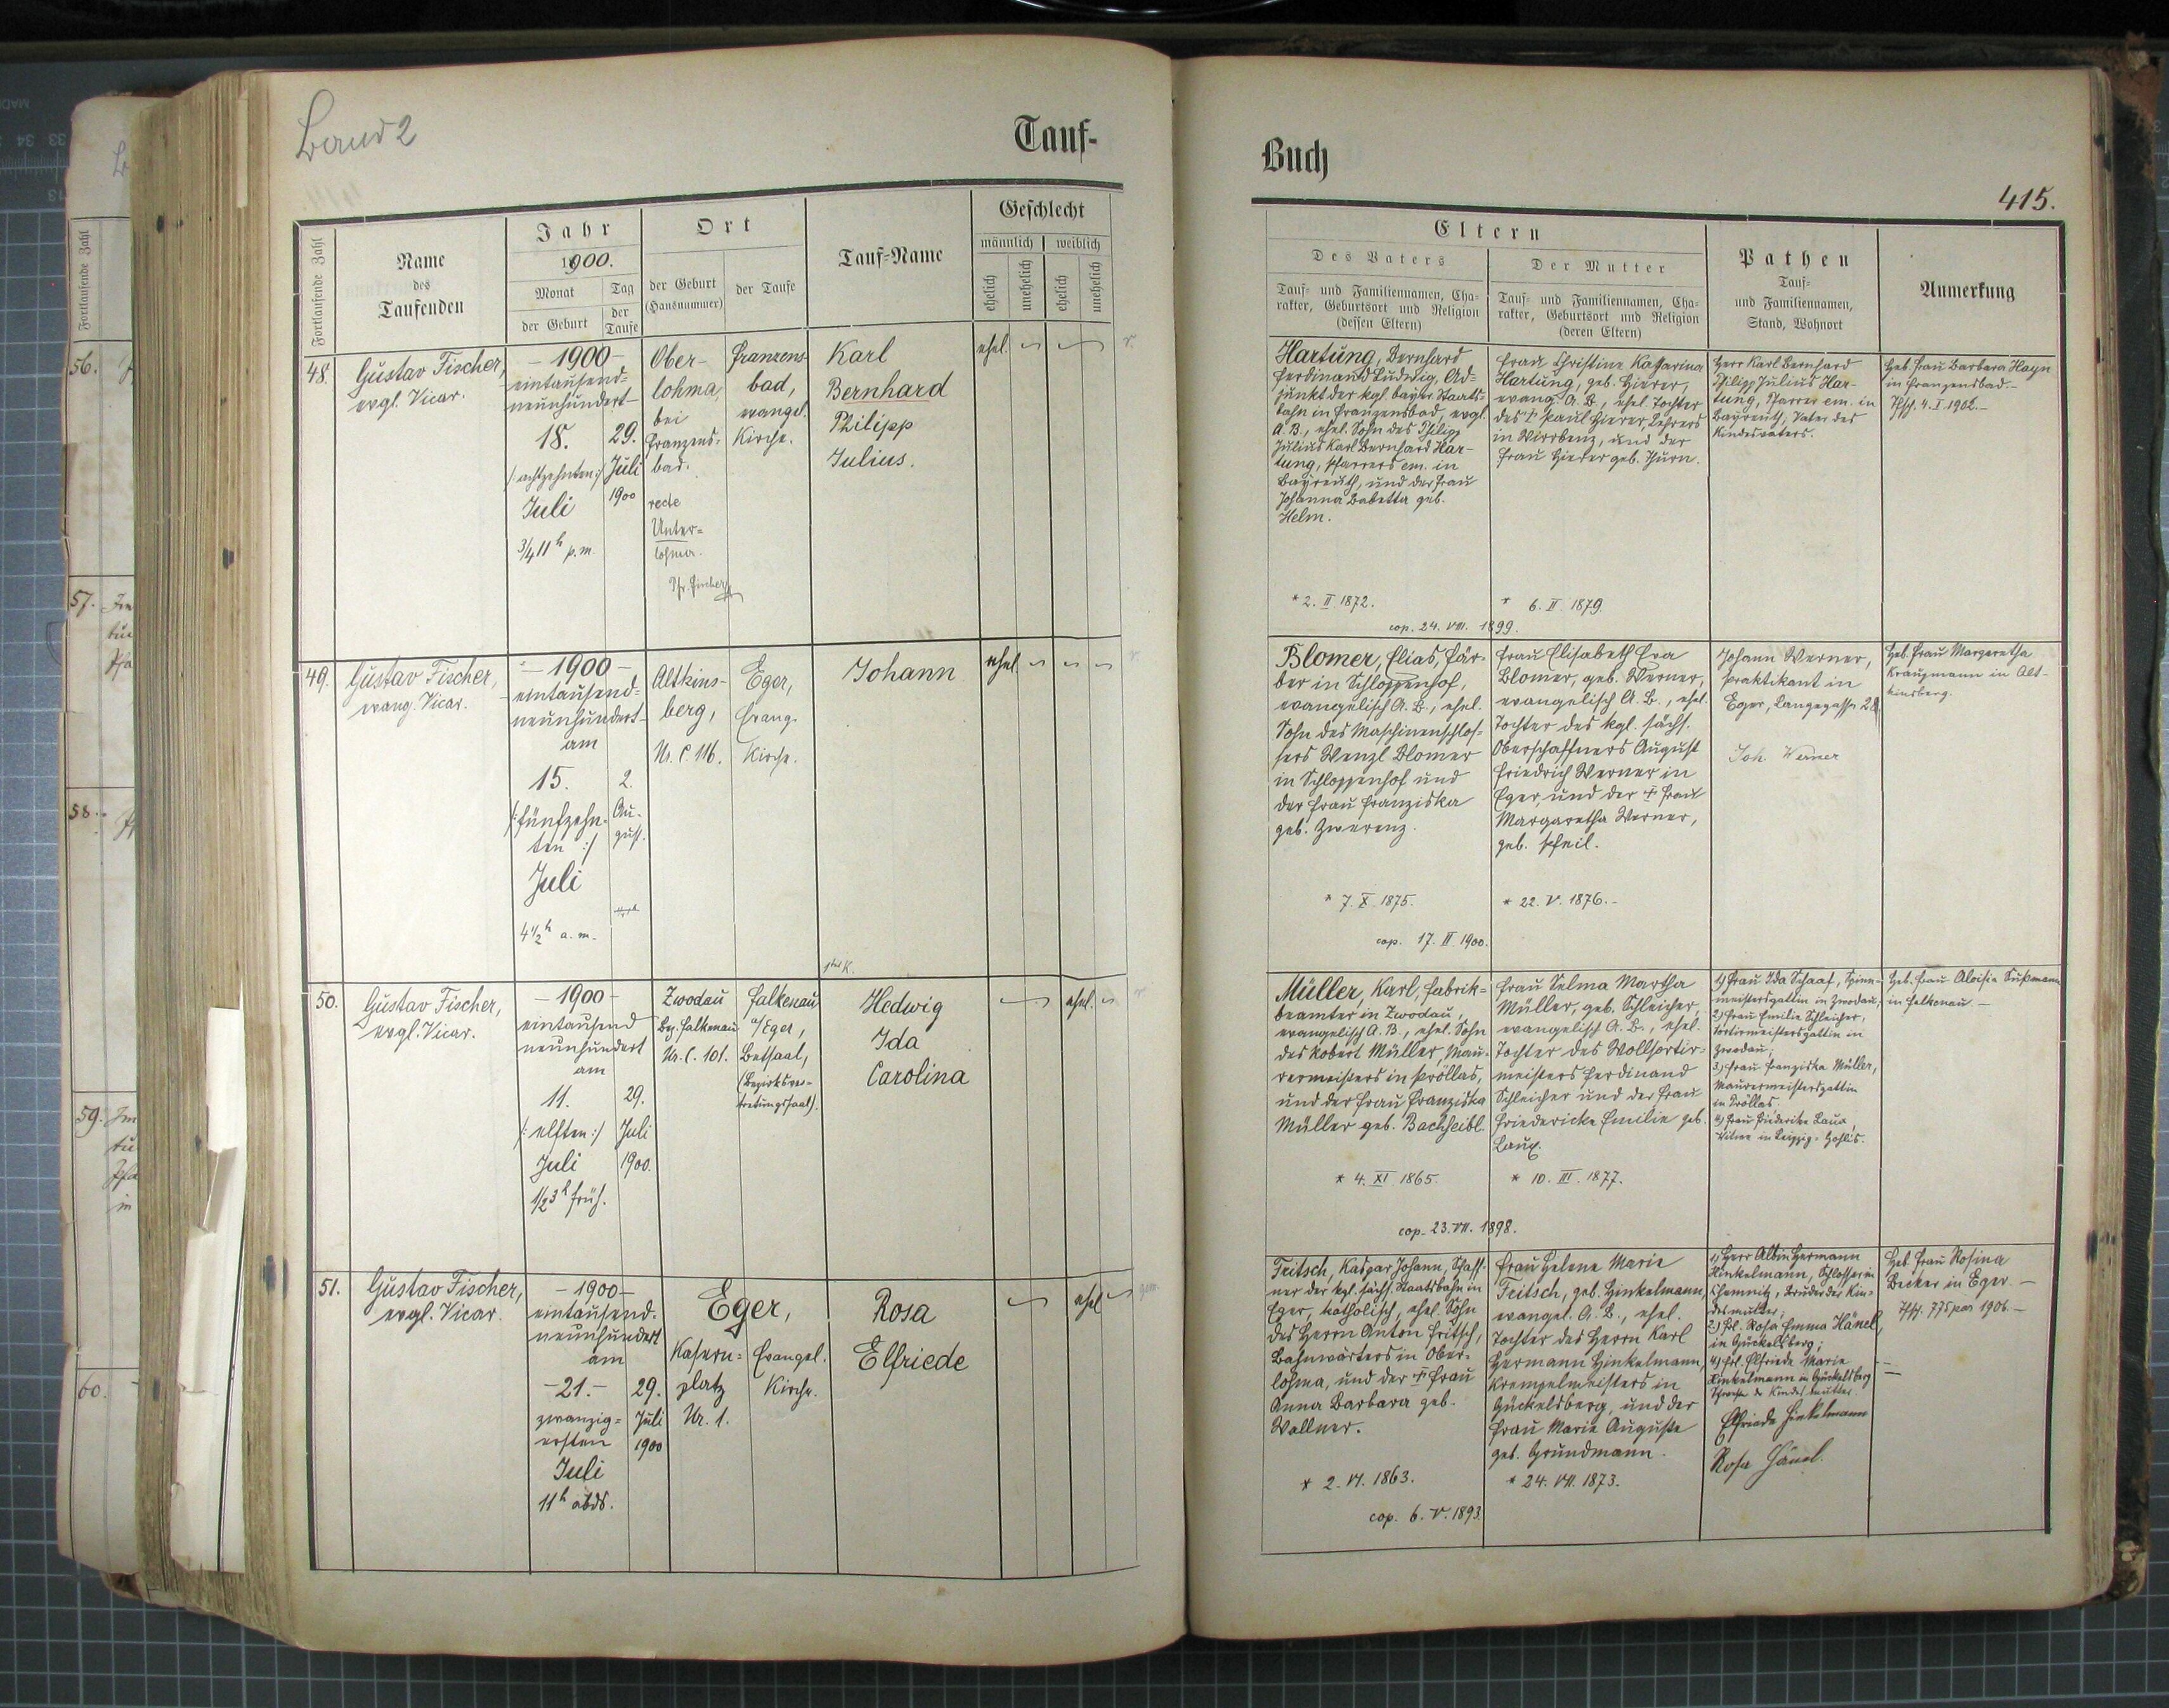 Band 2
Tauf-
Fortlaufende Zahl
Name
des
Taufenden
Jahr
1900.
Monat
Tag
der Geburt
der
Taufe
Ort
der Geburt
(Hausnummer)
der Taufe
Tauf-Name
Geschlecht
männlich
weiblich
ehelich
unehelich
ehelich
unehelich
48.
Gustav Fischer,
evgl. Vicar.
- 1900 -
eintausend=
neunhundert-
18.
/: achtzehnten :/
Juli
3/4 11 h p. m.
29.
Juli
1900
Ober-
lohma,
bei
Franzens-
bad.
recte
Unter-
lohma.
Pfr. Fischer
Franzens-
bad,
evangel.
Kirche.
Karl
Bernhard
Philipp
Julius.
ehel.
49.
Gustav Fischer,
evang. Vicar.
- 1900 -
eintausend=
neunhundert-
am
15.
/: fünfzehn-
ten :/
Juli
4 1/2 h a. m.
2.
Au-
gust.
Altkins-
berg,
Nr. C. 116.
Eger,
Evang.
Kirche.
Johann
ehel.
50.
Gustav Fischer,
evgl. Vicar.
- 1900 -
eintausend
neunhundert
am
11.
/: elften :/
Juli
1/2 3 h früh.
29.
Juli
1900.
Zwodau
Bez. Falkenau
Nr. C. 101.
Falkenau
a/Eger,
Betsaal,
(Bezirksver-
tretungssaal).
1tes K.
Hedwig
Ida
Carolina
ehel.
51.
Gustav Fischer,
evgl. Vicar.
- 1900 -
eintausend-
neunhundert
am
- 21. -
zwanzig=
ersten
Juli
11 h abds.
29.
Juli
1900
Eger,
Kasern=
platz
Nr. 1.
Evangel.
Kirche.
Rosa
Elfriede
ehel.
Buch
415.
Eltern
Des Vaters
Tauf- und Familiennamen, Cha-
rakter, Geburtsort und Religion
(dessen Eltern)
Der Mutter
Tauf- und Familiennamen, Cha-
rakter, Geburtsort und Religion
(deren Eltern)
Pathen
Tauf-
und Familiennamen,
Stand, Wohnort
Anmerkung
Hartung, Bernhard
Ferdinand Ludwig, Ad-
junkt der kgl. bayer. Staats-
bahn in Franzensbad, evgl.
A. B., ehel. Sohn des Philipp
Julius Karl Bernhard Har-
tung, Pfarrers em. in
Bayreuth, und der Frau
Johanna Babetta geb.
Helm.
* 2. II. 1872.
cop. 24. VIII. 1899.
Frau Christine Katharina
Hartung, geb. Hierer,
evang. A. B., ehel. Tochter
des † Paul Hierer, Lehrers
in Wirbenz, und der
Frau Hierer geb. Thurn.
* 6. II. 1879.
Herr Karl Bernhard
Philipp Julius Har-
tung, Pfarrer em. in
Bayreuth, Vater des
Kindesvaters.
Heb. Frau Barbara Hayn
in Franzensbad.-
4. I. 1902.-
Blomer, Elias, Fär-
ber in Schloppenhof,
evangelisch A. B., ehel.
Sohn des Maschinenschlos-
sers Wenzl Blomer
in Schloppenhof und
der Frau Franziska
geb. Zwerenz.
* 7. X. 1875.
cop. 17. II. 1900.
Frau Elisabeth Eva
Blomer, geb. Werner,
evangelisch A. B., ehel.
Tochter des kgl. sächs.
Oberschaffners August
Friedrich Werner in
Eger, und der † Frau
Margaretha Werner,
geb. Pfeil.
* 22. V. 1876.-
Johann Werner,
Praktikant in
Eger, Langegasse
Joh. Werner
Heb. Frau Margaretha
Kraugmann in Alt-
kinsberg.
Müller, Karl, Fabrik=
beamter in Zwodau,
evangelisch A. B., ehel. Sohn
des Robert Müller, Mau-
rermeisters in Pröllas,
und der Frau Franziska
Müller geb. Bachheibl.
* 4. XI. 1865.
cop. 23. VII. 1898.
Frau Selma Martha
Müller, geb. Schleicher,
evangelisch A. B., ehel.
Tochter des Wollsortir-
meisters Ferdinand
Schleicher und der Frau
Friedericke Emilie geb.
Laux.
* 10. III. 1877.
1) Frau Ida Schaaf, Spinn-
meistersgattin in Zwodau;
2) Frau Emilie Schleicher,
Sortirmeistersgattin in
Zwodau;
3) Frau Franziska Müller,
Maurermeistersgattin
in Pröllas.
4) Frau Friederike Laux,
Witwe in Leipzig-Gohlis.
Heb. Frau Aloisia Süßmann
in Falkenau -
Fritsch, Kaspar Johann, Schaff-
ner der kgl. sächs. Staatsbahn in
Eger, katholisch, ehel. Sohn
des Herrn Anton Fritsch,
Bahnwärters in Ober-
lohma, und der † Frau
Anna Barbara geb.
Wallner.
* 2. VI. 1863.
cop. 6. V. 1893.
Frau Helene Marie
Fritsch, geb. Hinkelmann,
evangel. A. B., ehel.
Tochter des Herrn Karl
Hermann Hinkelmann,
Krempelmeisters in
Gückelsberg, und der
Frau Marie Auguste
geb. Grundmann.
* 24. VII. 1873.
1) Herr Albin Hermann
Hinkelmann, Schlosser in
Chemnitz, Bruder der Kin-
desmutter;
2) Frl. Rosa Emma Hänel,
in Gückelsberg;
4) Frl. Elfriede Marie
Hinkelmann in Gückelsberg
Schwester der Kindesmutter.
Elfriede Hinkelmann
Rosa Hänel.
Heb. Frau Rosina
Becker in Eger. -
775 par 1906.-
56.
57.
58.
59.
60.